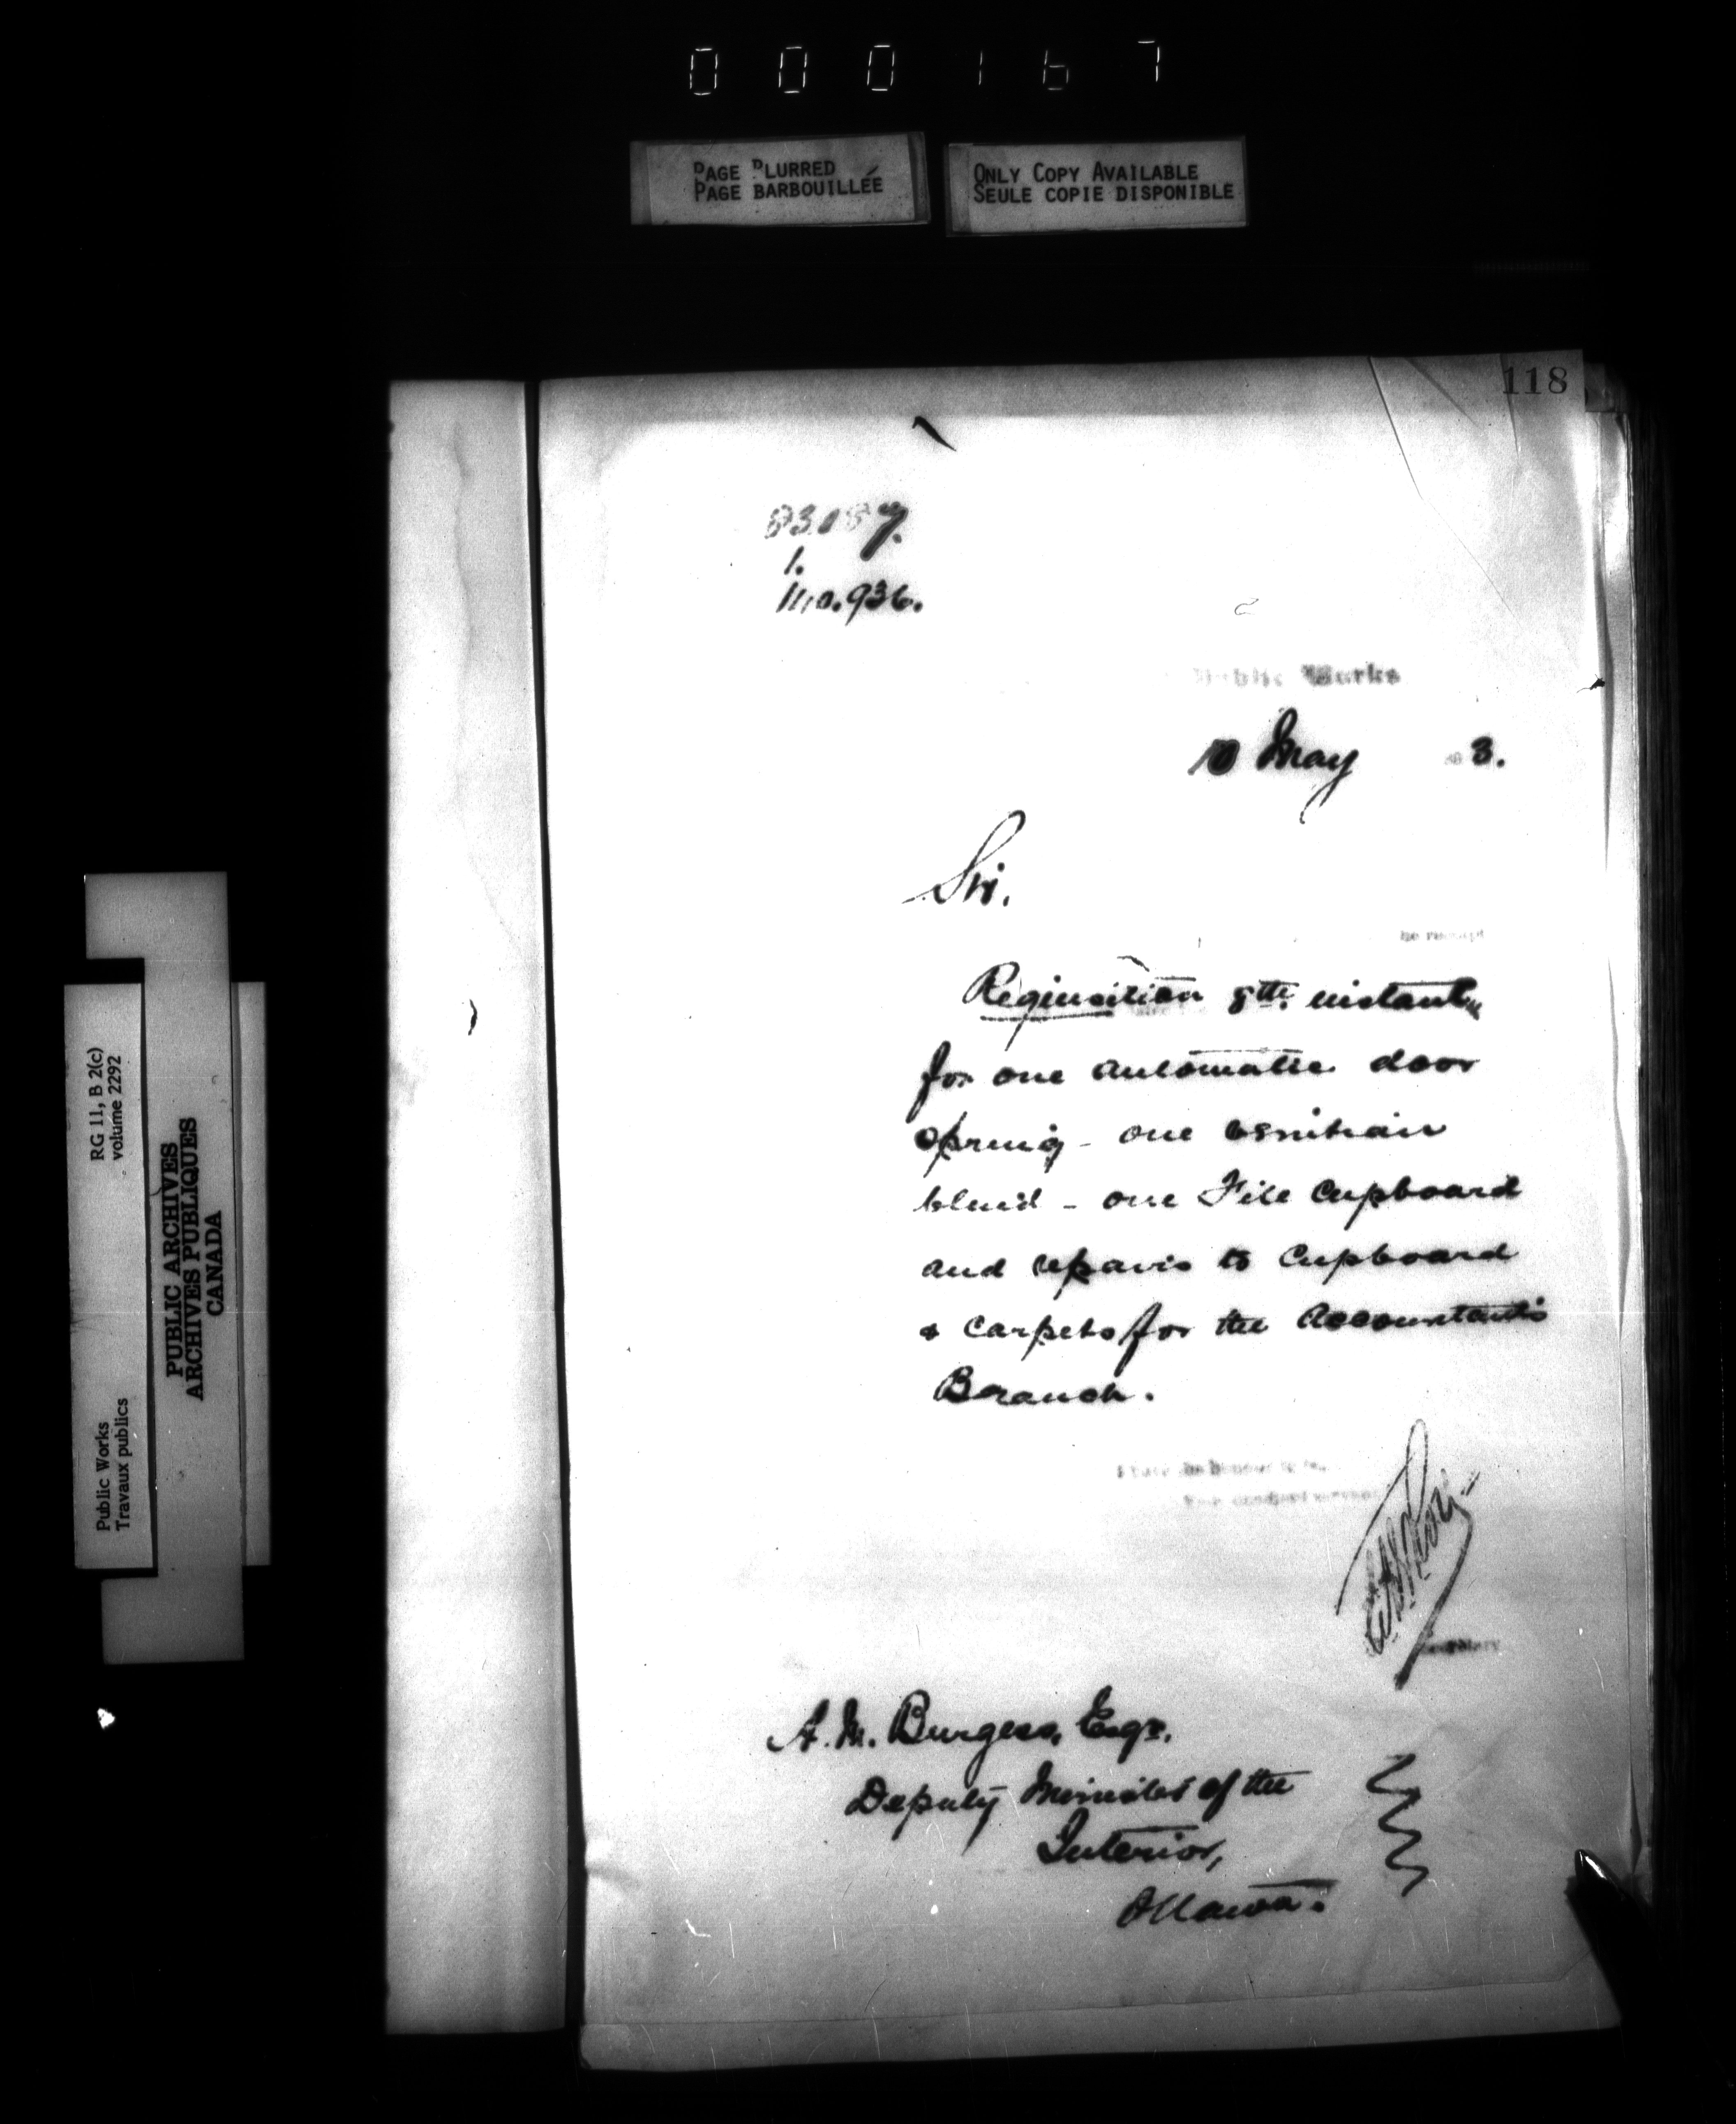 000167
PAGE BLURRED
PAGE BARBOUILLÉE
ONLY COPY AVAILABLE
SEULE COPIE DISPONIBLE
118
1.
Public Works
10 May 3.
Sir.
he receipt
Requisition 8th. instant
for one automatic door
spring - one venitian
blind - one File Cupboard
and repairs to Cupboard
& carpets for the Accountant's
Branch.
I have the honour to be,
Your obedient servant
Secretary
A. M. Burgess, Esqr.
Deputy Minister of the
Interior,
Ottawa.
RG 11, B 2(c)
volume 2292
PUBLIC ARCHIVES
ARCHIVES PUBLIQUES
CANADA
Public Works
Travaux publics